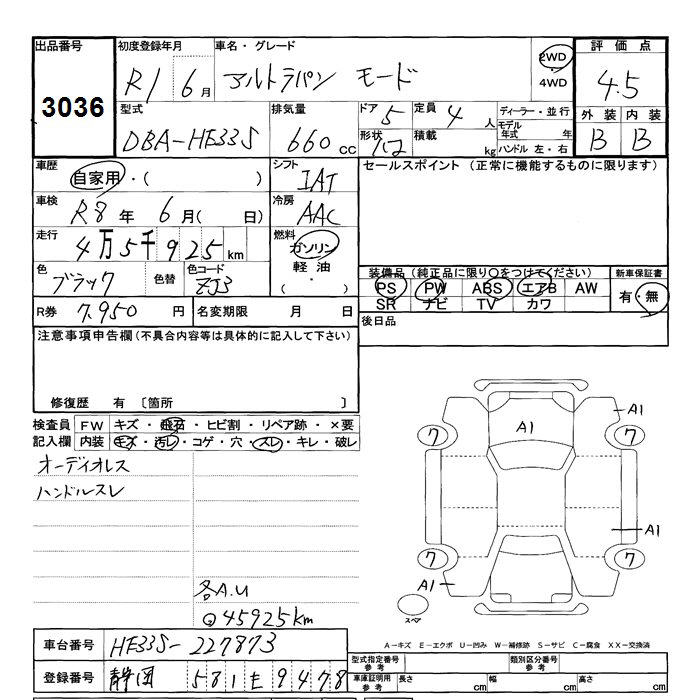 出品番号 3036
初度登録年月 R1 6月
車名・グレード アルトラパン モード
2WD
4WD
評価点 4.5
型式 DBA-HE33S
排気量 660cc
ドア 5
形状
定員 4人
積載 kg
ディーラー・並行
モデル年式 年
ハンドル 左・右
外装 B 内装 B
車歴 自家用・( )
シフト IAT
セールスポイント (正常に機能するものに限ります)
車検 R8年 6月( 日)
冷房 AAC
走行 4万5千925km
燃料 ガソリン
軽油
( ・ )
色 ブラック 色替
色コード ZJ3
装備品(純正品に限り○をつけてください)
PS PW ABS エアB AW
SR ナビ TV カワ
新車保証書
有・無
R券 7.950円
名変期限 月 日
後日品
注意事項申告欄(不具合内容等は具体的に記入して下さい)
修復歴 有 〔箇所 〕
検査員記入欄
FW キズ・飛石・ヒビ割・リペア跡・×要
内装 キズ・汚レ・コゲ・穴・スレ・キレ・破レ
オーディオレス
ハンドルスレ
各A.U
@45925km
A1
A1
7
7
A1
A1
7
7
スペア
A-キズ E-エクボ U-凹み W-補修跡 S-サビ C-腐食 XX-交換済
車台番号 HE33S-227873
登録番号 静岡 581 セ 9478
型式指定番号 参考
類別区分番号 参考
車庫証明用 参考
長さ cm
幅 cm
高さ cm